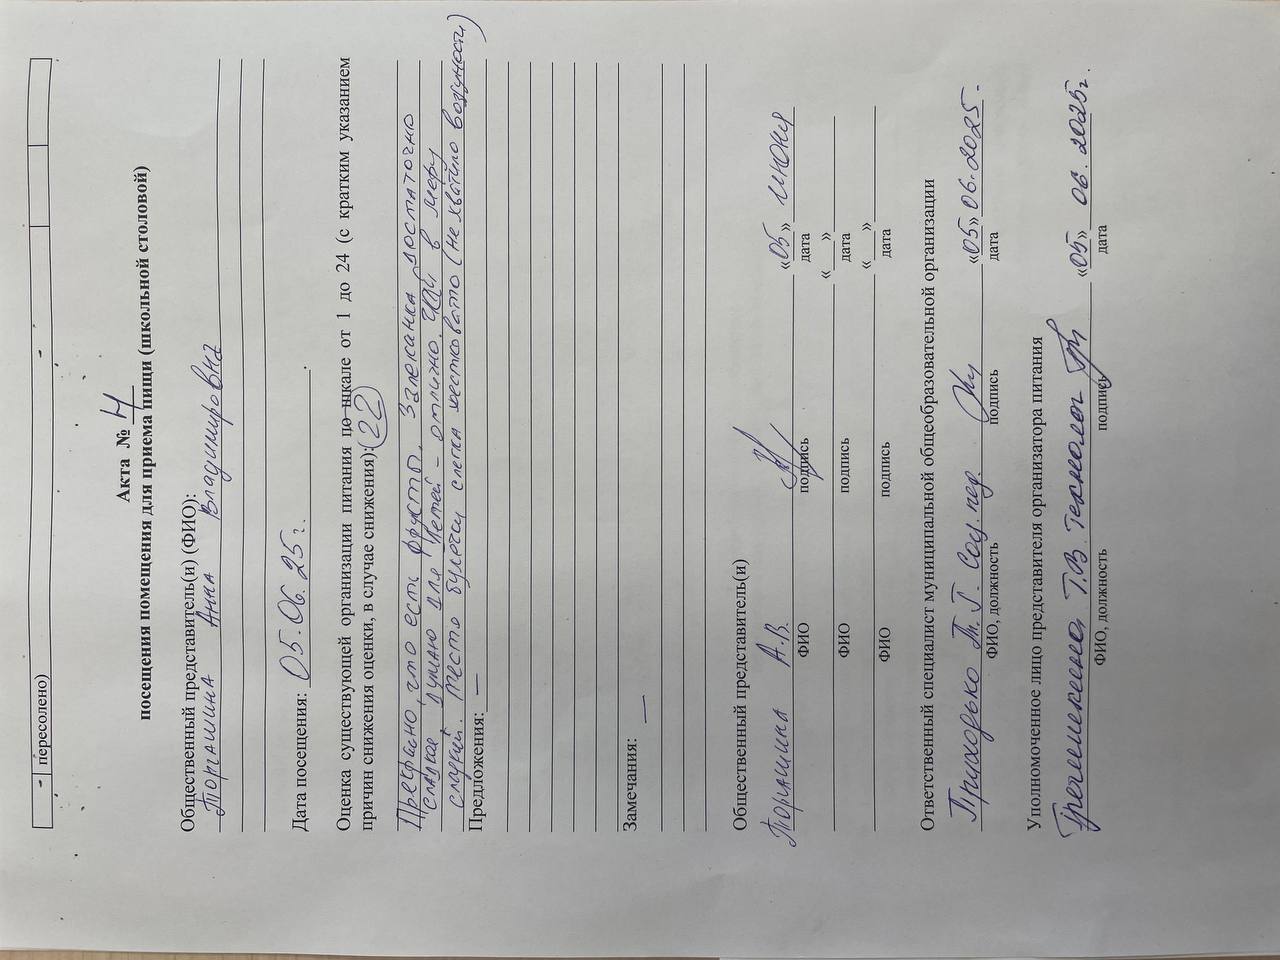 - пересолено)
Акта № 4
посещения помещения для приема пищи (школьной столовой)
Общественный представитель(и) (ФИО):
Торгашина Анна Владимировна
Дата посещения: 05.06.25г.
Оценка существующей организации питания по шкале от 1 до 24 (с кратким указанием
причин снижения оценки, в случае снижения): 22
Прекрасно, что есть фрукты. Запеканка достаточно
сладкая, думаю для детей - отлично. Чай в меру
сладкий. Тесто булочки слегка жестковато (не хватило воздушности)
Предложения: —
Замечания: —
Общественный представитель(и)
Торгашина А.В. «05» июня
ФИО подпись дата
« »
ФИО подпись дата
« »
ФИО подпись дата
Ответственный специалист муниципальной общеобразовательной организации
Приходько Т.Г. Соц. пед. «05» 06.2025.
ФИО, должность подпись дата
Уполномоченное лицо представителя организатора питания
Т.В. технолог «05» 06.2025г.
ФИО, должность подпись дата